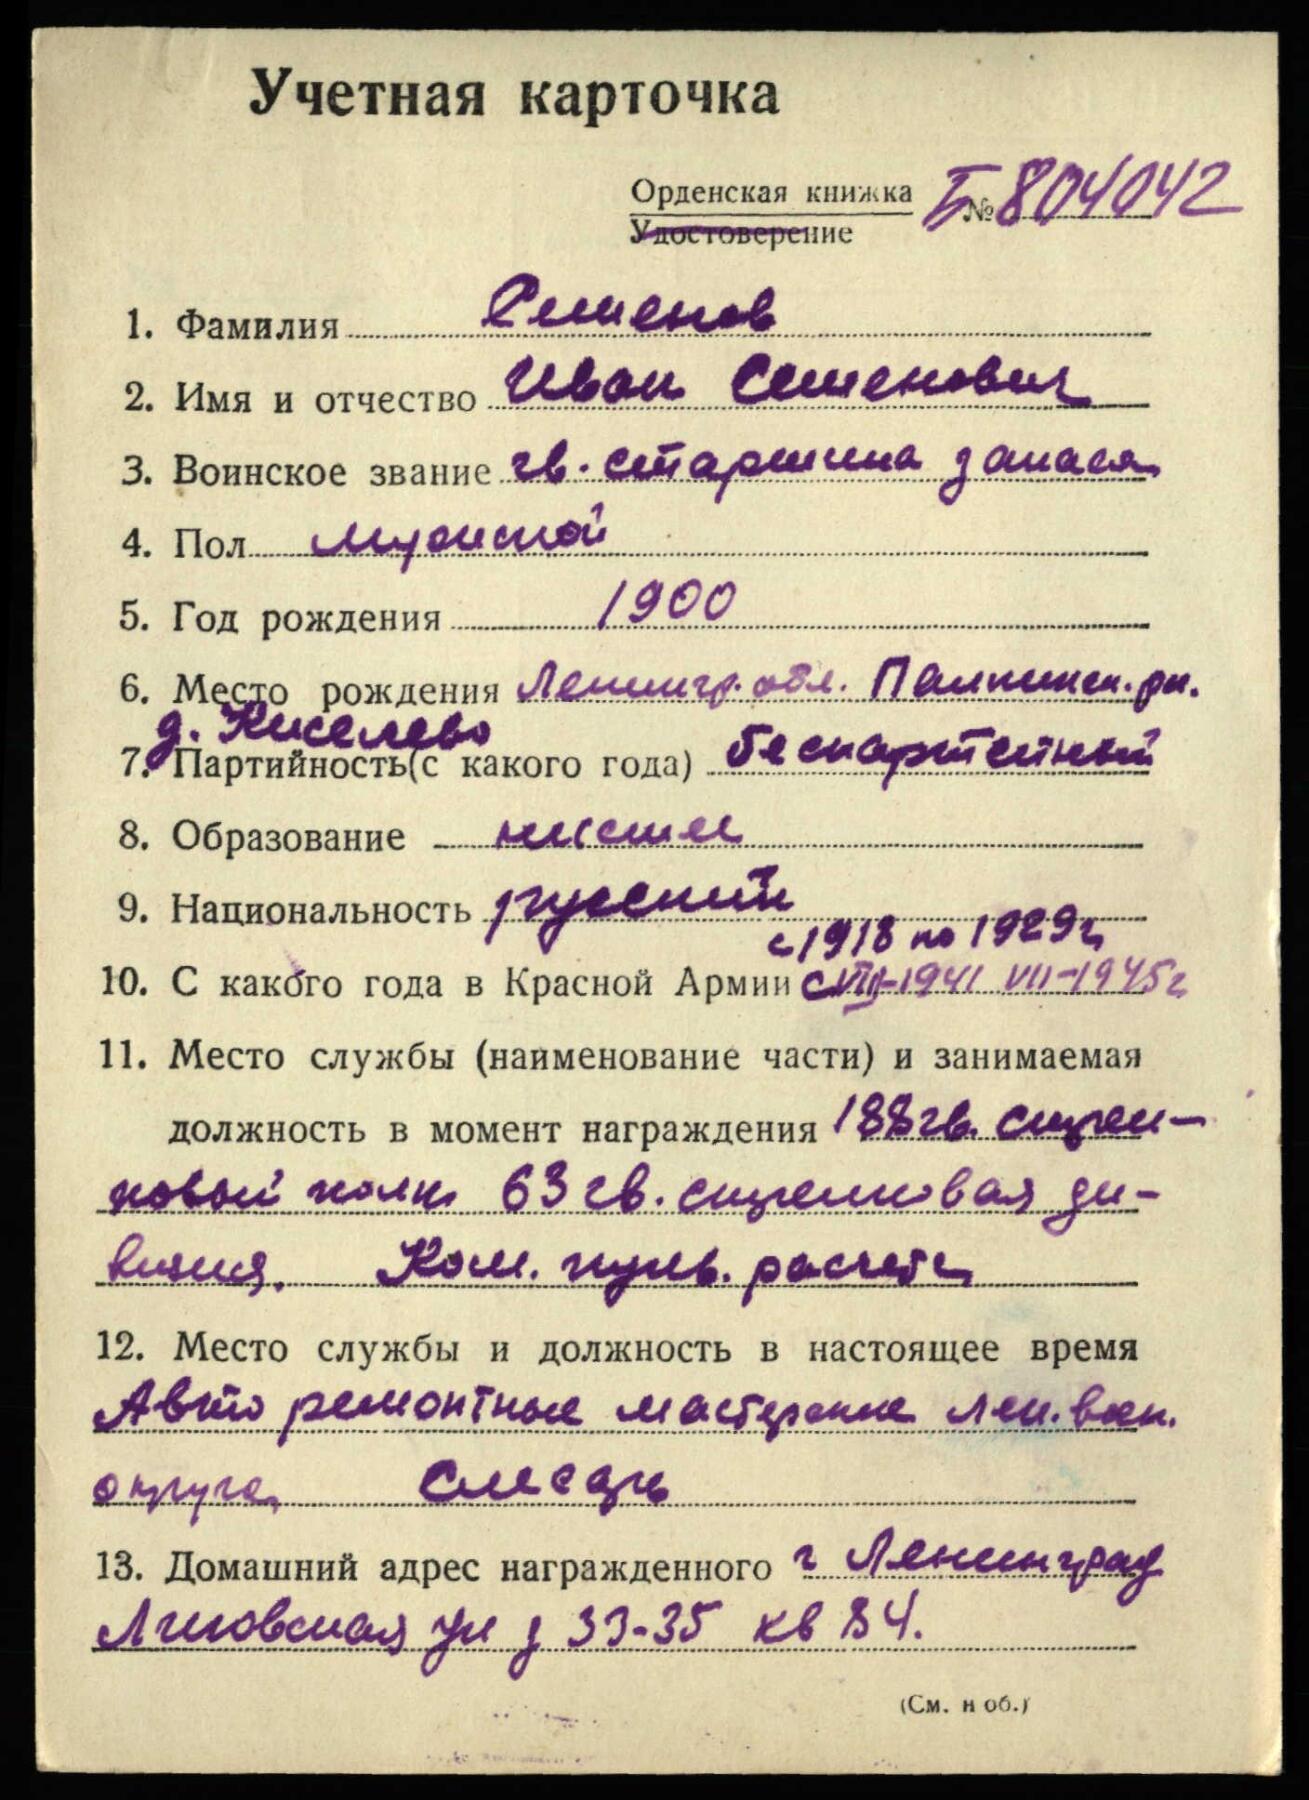 Учетная карточка
Орденская книжка Б № 804042
Удостоверение
1. Фамилия Семенов
2. Имя и отчество Иван Семенович
3. Воинское звание гв. старшина запаса
4. Пол мужской
5. Год рождения 1900
6. Место рождения Ленингр. обл. Палкинск. рн.
д. Киселево
7. Партийность (с какого года) беспартейный
8. Образование низшее
9. Национальность русский
с 1918 по 1929г.
10. С какого года в Красной Армии с VIII-1941 VII-1945г
11. Место службы (наименование части) и занимаемая
должность в момент награждения 188 гв. стрел-
ковый полк 63 гв. стрелковая ди-
визия. Ком. пулв. расчета
12. Место службы и должность в настоящее время
Авто ремонтные мастерские Лен. воен.
округа, слесарь
13. Домашний адрес награжденного г Ленинград
Лиговская ул д 33-35 кв 84.
(См. н об.)